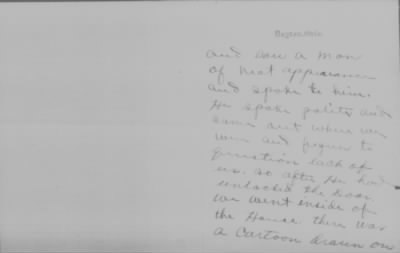 Dayton, Ohio.
and saw a man
of neat appearance
and spoke to him.
He spoke polite and
came out where we
were and began to
question each of
us. so after He had
unlocked the door.
we went inside of
the House. there was
a Cartoon drawn on